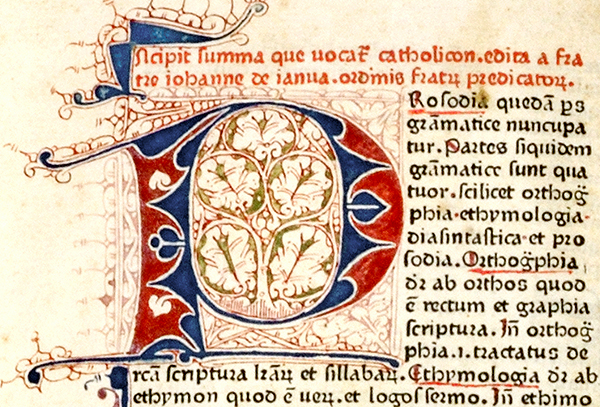 Incipit summa que vocat᷑ catholicon.edita a fra
tre iohanne de ianua.ordinis fratrꝝ predicatorꝝ.
PRosodia quedā ꝑs
gramatice nuncupa
tur. Partes siquidem
gramatice sunt qua
tuor.scilicet orthog̃
phia.ethymologia.
diasintastica.et pro
sodia. Orthog̃phia
dr̄ ab orthos quod
ē rectum et graphia
scriptura. Iñ orthog̃
phia.i.tractatus de
recta scriptura lr̄arꝝ et sillabarꝝ. Ethymologia dr̄ ab
ethymon quod ē verꝝ.et logos sermo. Iñ ethimo